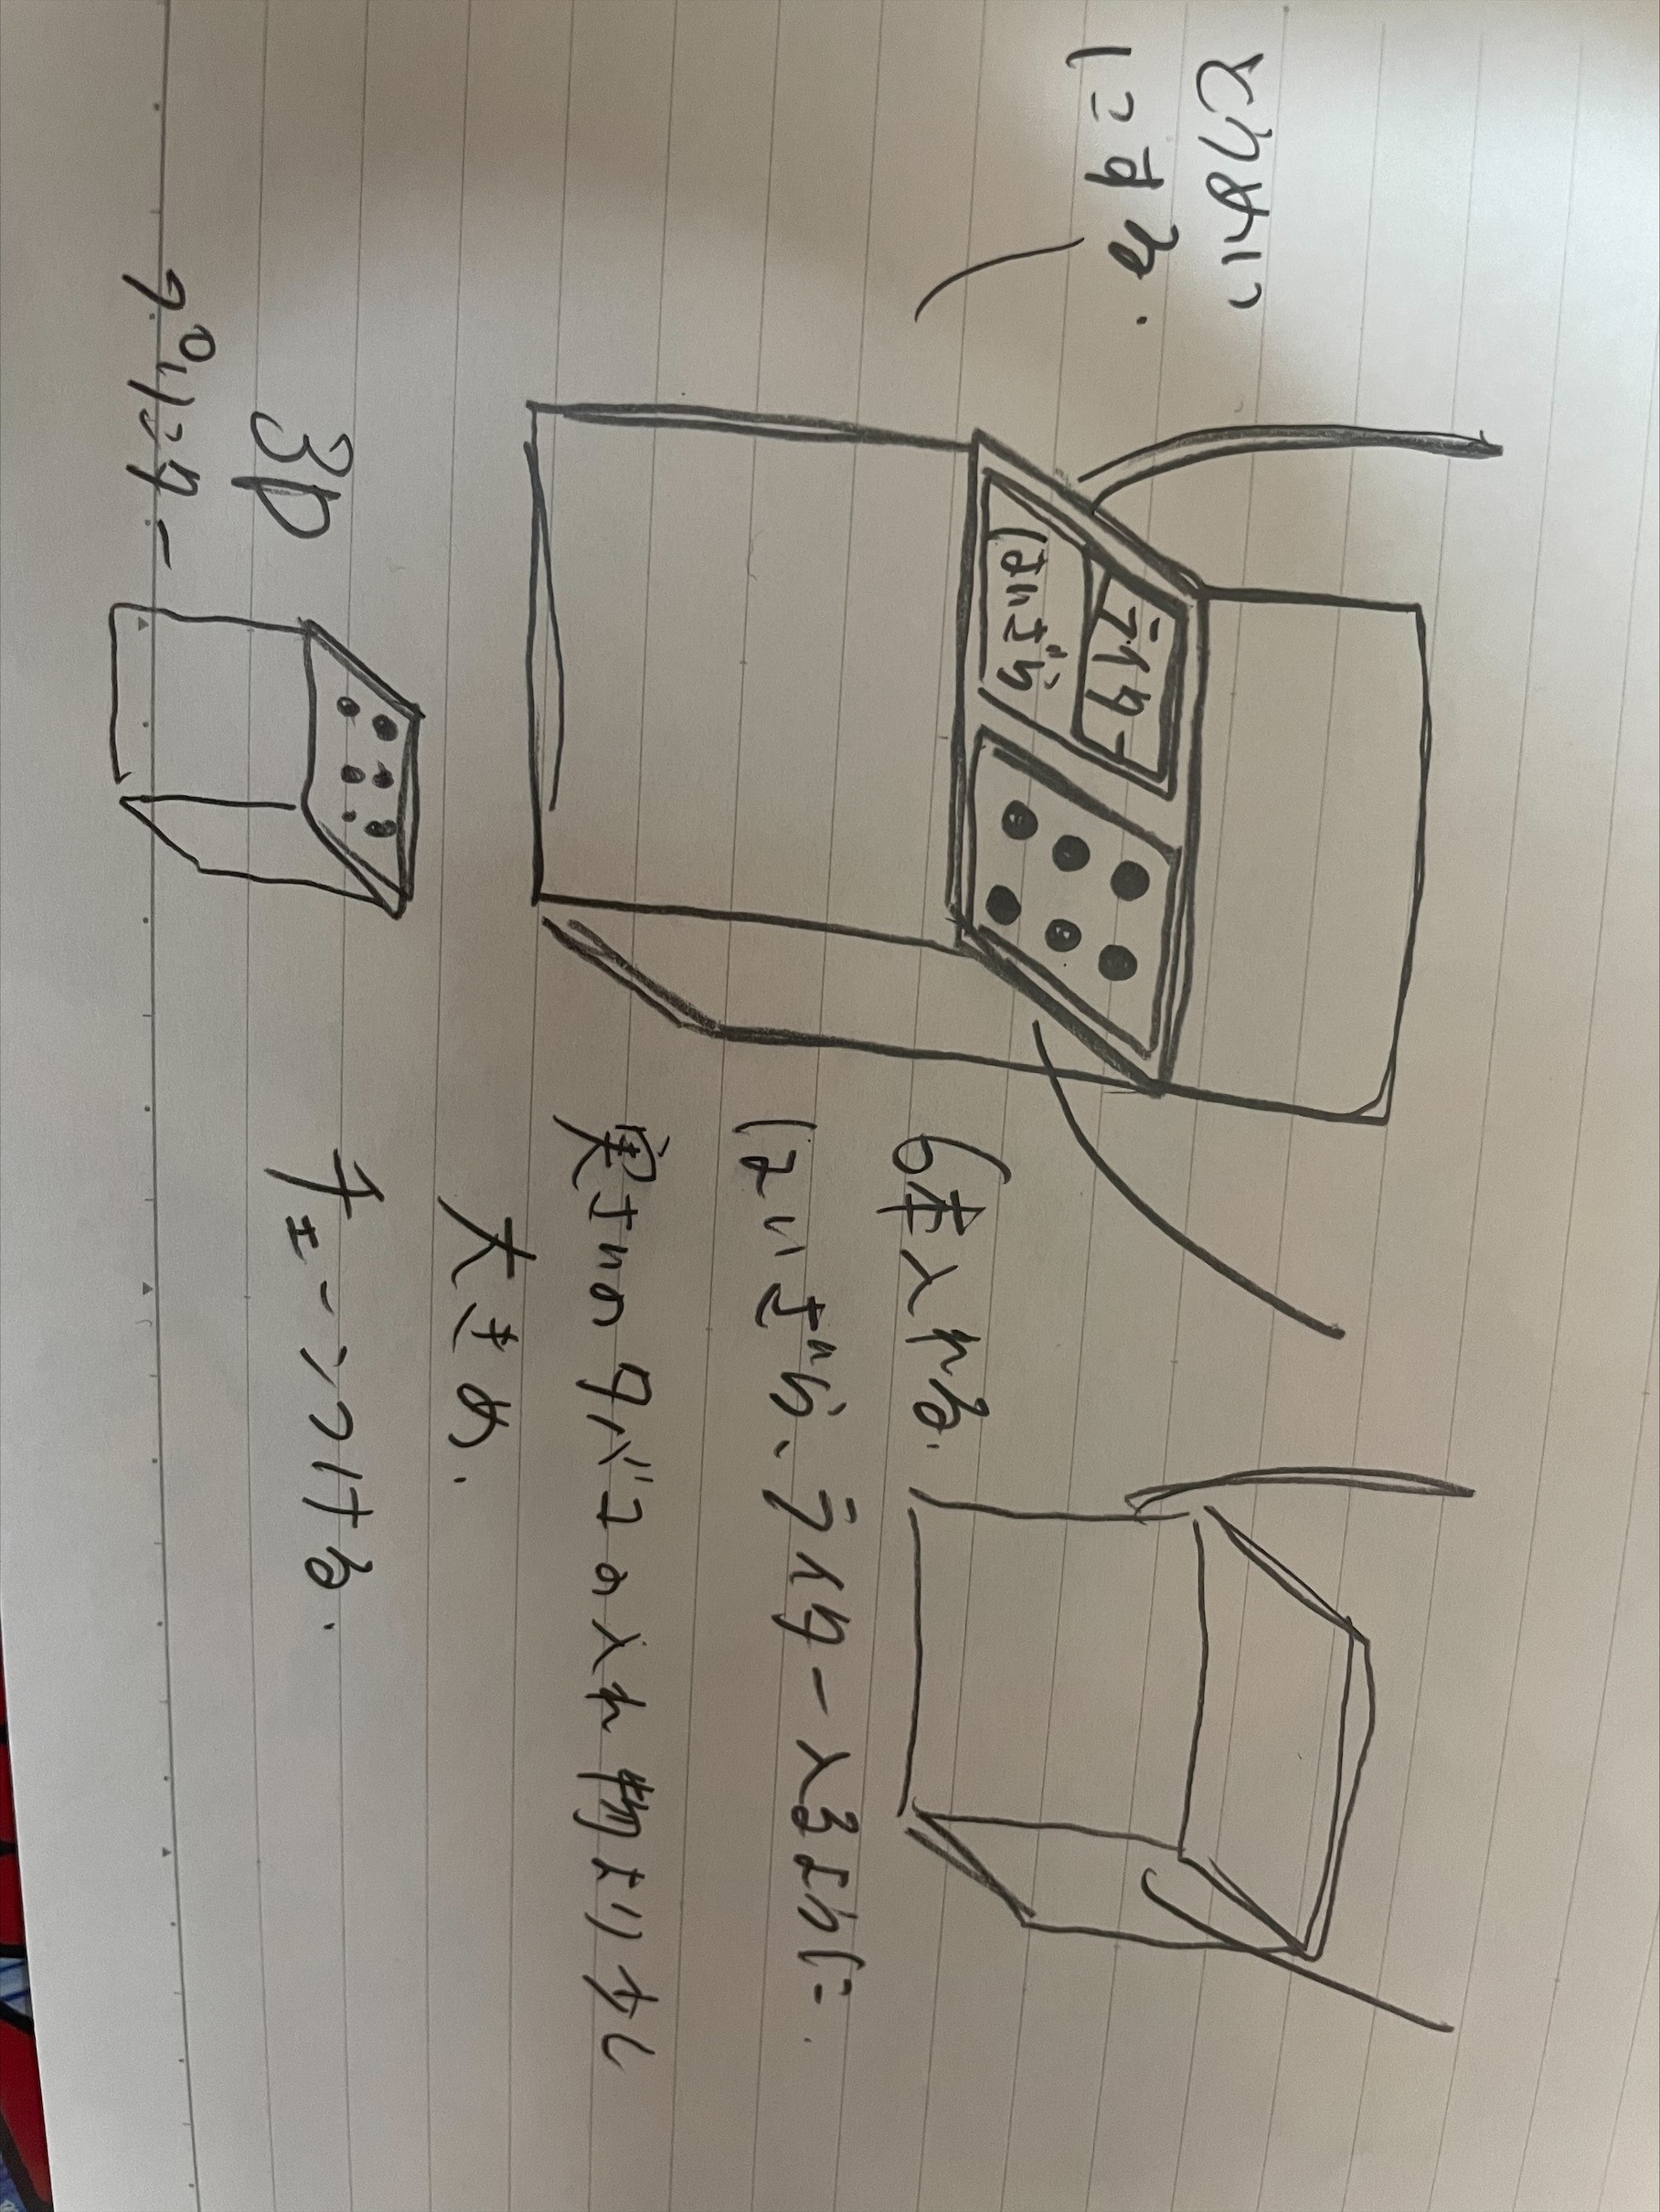 にする.
ライター
はいざら
6本入れる.
はいざら、ライター入るように.
実さいのタバコの入れ物より少し
大きめ.
チェーンつける.
3D
プリンター